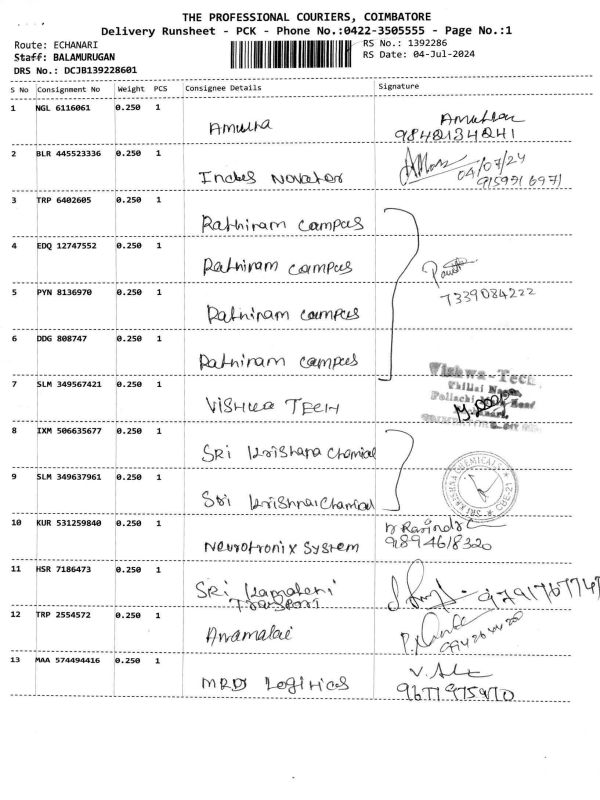 THE PROFESSIONAL COURIERS, COIMBATORE
Delivery Runsheet - PCK - Phone No.:0422-3505555 - Page No.:1
Route: ECHANARI
RS No.: 1392286
Staff: BALAMURUGAN
RS Date: 04-Jul-2024
DRS No.: DCJB139228601
S No Consignment No Weight PCS Consignee Details Signature
1 NGL 6116061 0.250 1 Amutha
2 BLR 445523336 0.250 1 Indus Novator
04/07/24
3 TRP 6402605 0.250 1 Rathinam campus
4 EDQ 12747552 0.250 1 Rathinam campus
5 PYN 8136970 0.250 1 Rathinam campus
7339084222
6 DDG 808747 0.250 1 Rathinam campus
7 SLM 349567421 0.250 1 Vishwa TECH
Vishwa-Tech
8 IXM 506635677 0.250 1 SRI Krishana Chamical
9 SLM 349637961 0.250 1 Sri Krishna Chamical
SRI KRISHNA CHEMICALS
CBE-21
10 KUR 531259840 0.250 1 Neurotronix System
9894618320
11 HSR 7186473 0.250 1 SRI
12 TRP 2554572 0.250 1 Annamalai
13 MAA 574494416 0.250 1 MRDS Logitics
9677975970